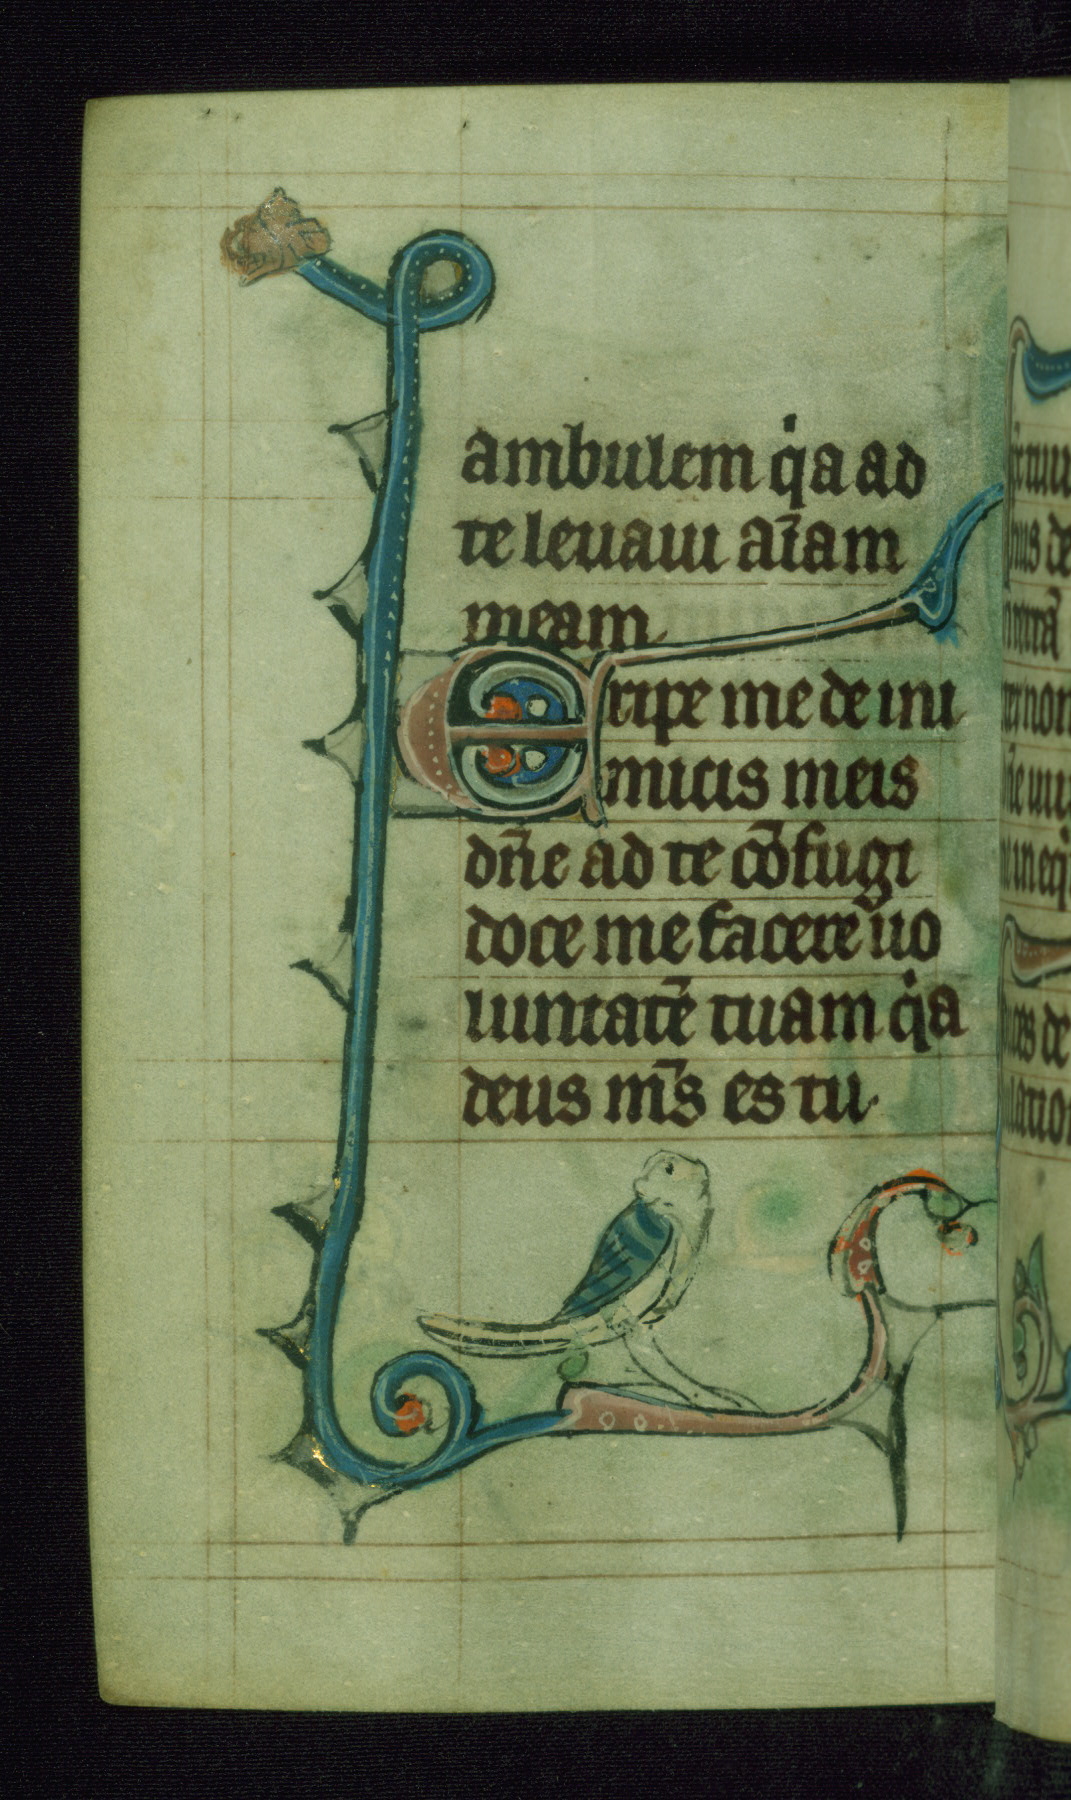 ambulem q̇a ad
te leuaui aīam
meam
Eripe me de ini
micis meis
dn̄e ad te cōfugi
doce me facere uo
luntatē tuam q̇a
deus m̄s es tu.